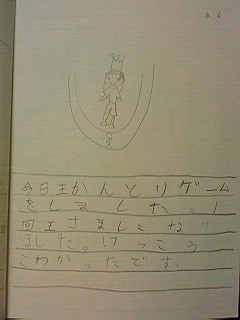 今日王かんとりゲーム
をしました。1
回王さまになり
ました。けっこう
こわかったです。